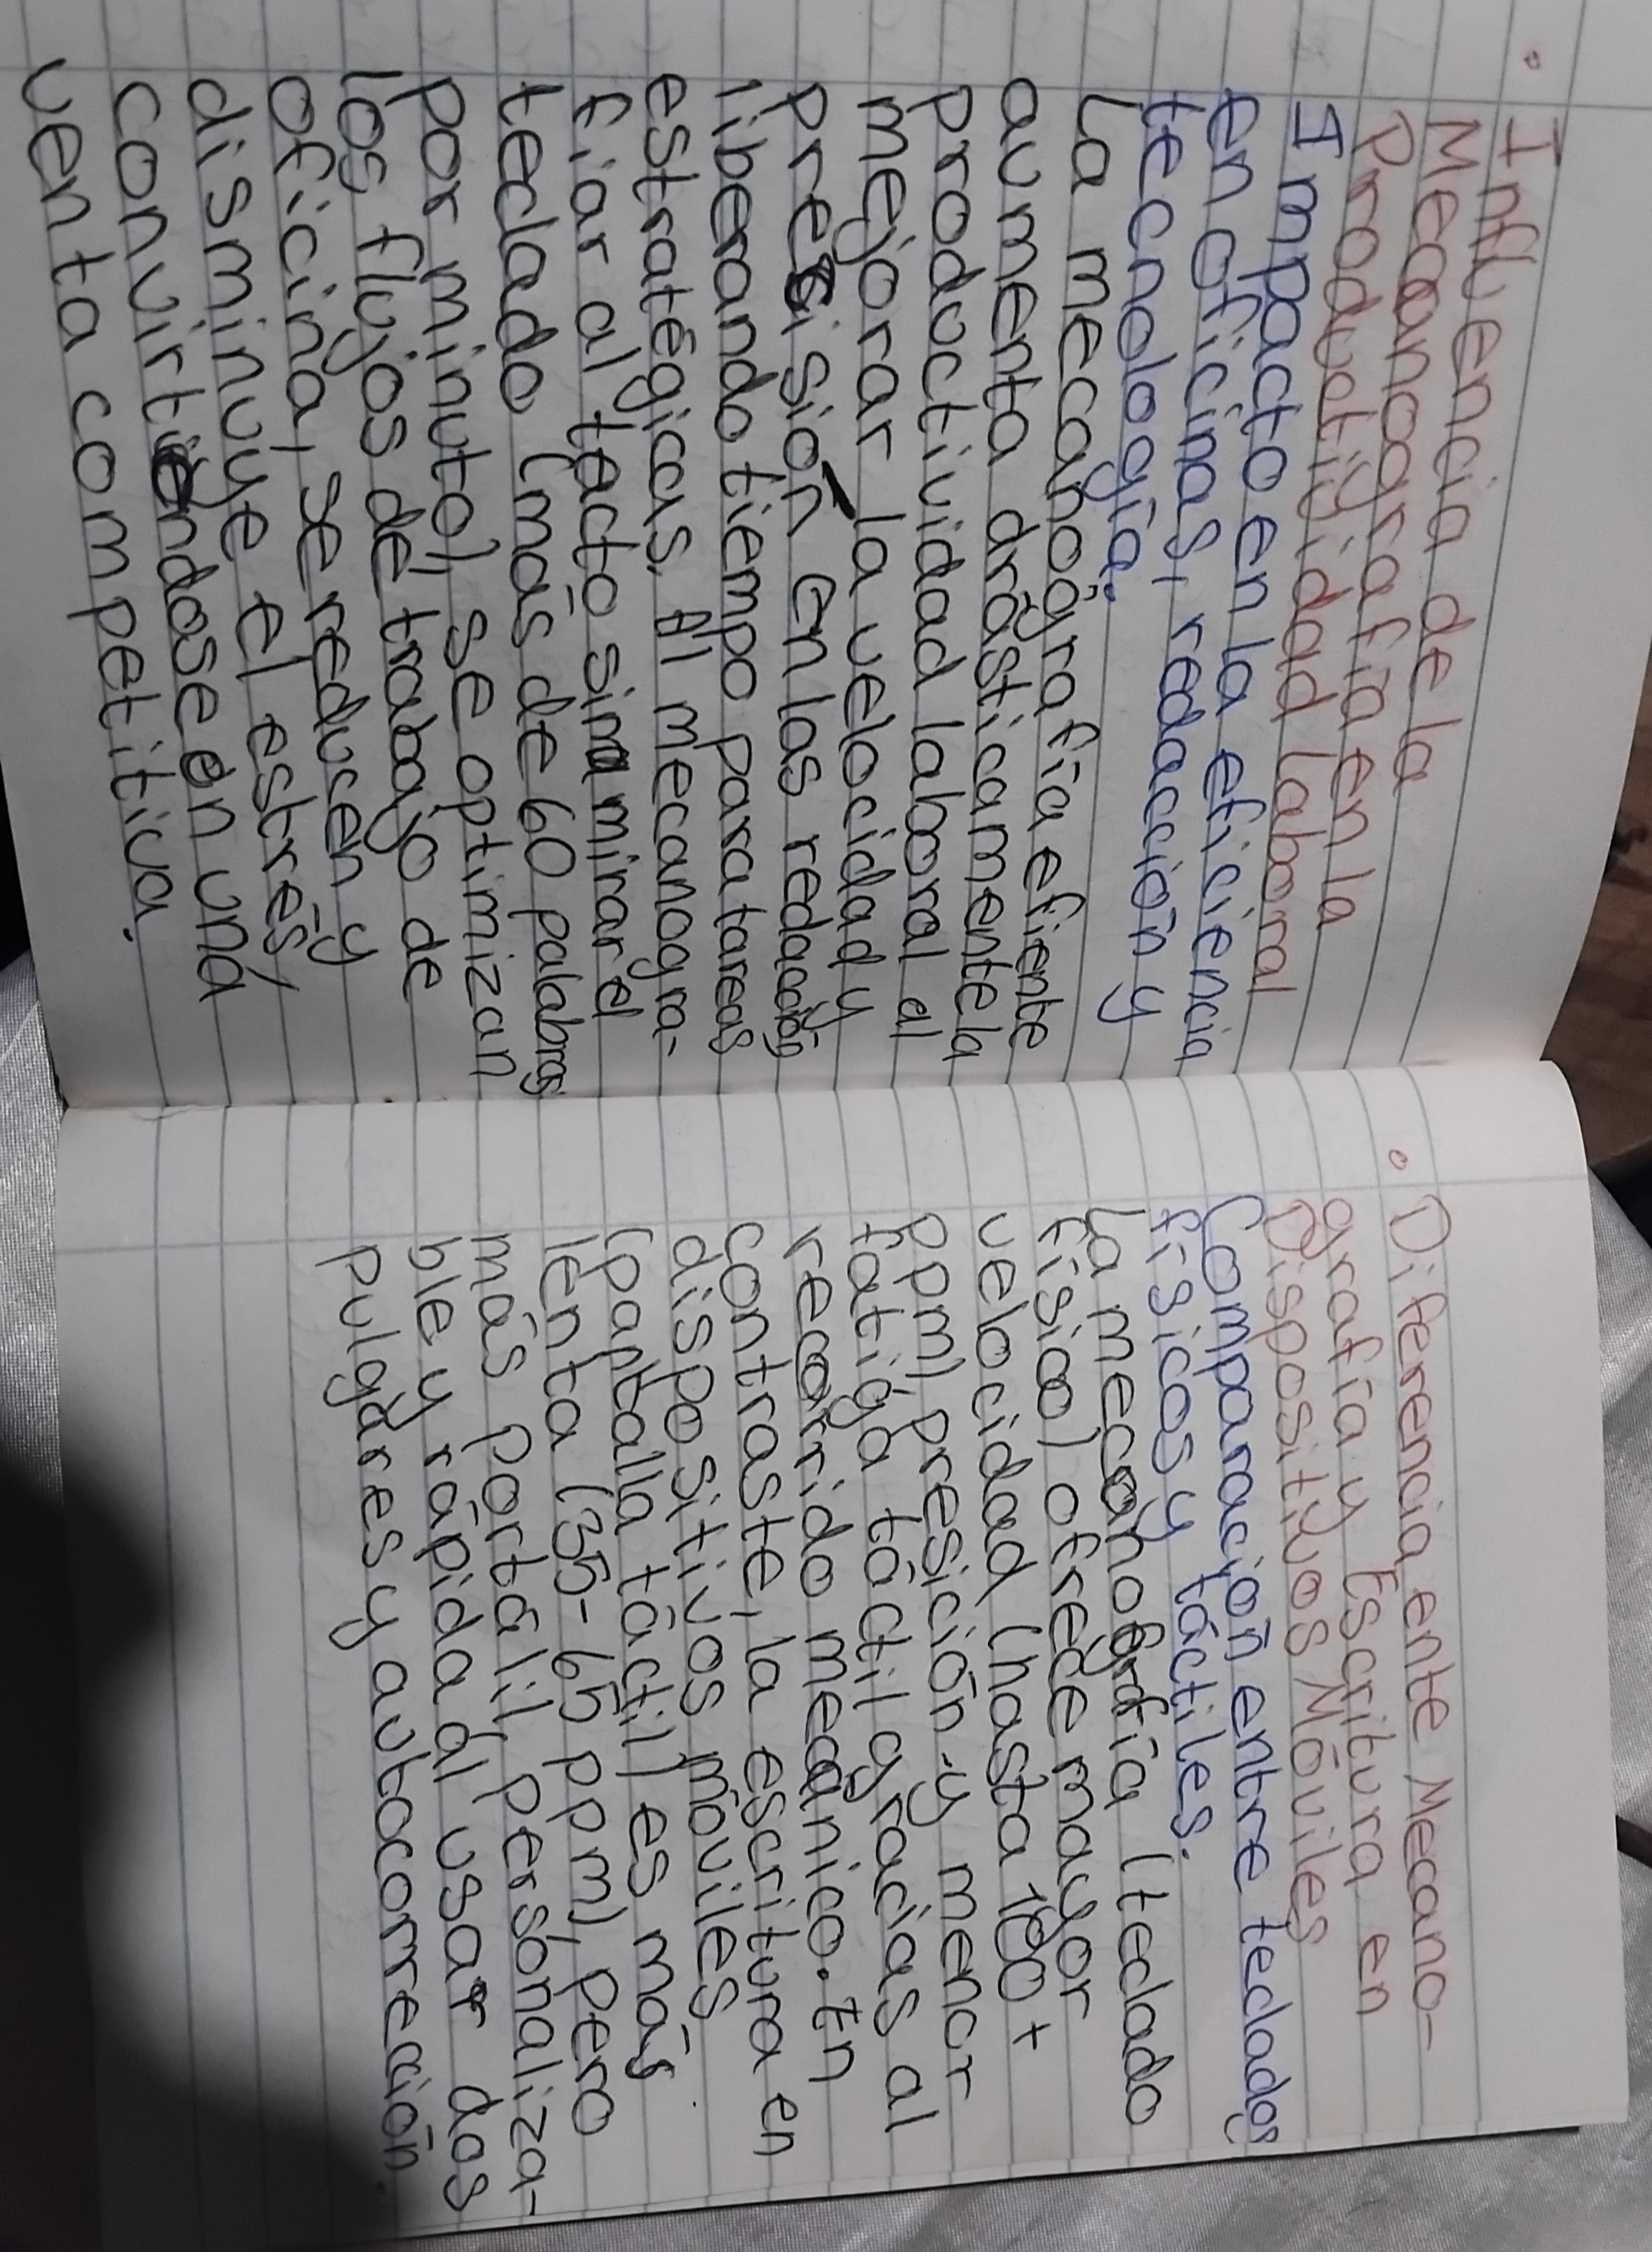 • Influencia de la
Mecanografía en la
Productividad laboral
Impacto en la eficiencia
en oficinas, redacción y
tecnología.
La mecanografía eficiente
aumenta drásticamente la
productividad laboral al
mejorar la velocidad y
presisión en las redacción
liberando tiempo para tareas
estratégicas. Al mecanogra-
fiar al tacto sin mirar el
teclado (más de 60 palabras
por minuto), se optimizan
los flujos de trabajo de
oficina, se reducen y
disminuye el estrés,
convirtiéndose en una
venta competitiva.
• Diferencia ente Mecano-
grafía y Escritura en
Dispositivos Móviles
Comparación entre teclados
físicos y táctiles.
La mecanografía (teclado
físico) ofrece mayor
velocidad (hasta 100+
ppm) presición y menor
fatiga táctil gracias al
recorrido mecánico. En
contraste, la escritura en
dispositivos móviles
(pantalla táctil) es más
lenta (35-65 ppm), pero
más portálil, personaliza-
ble y rápida al usar dos
pulgares y autocorrección.